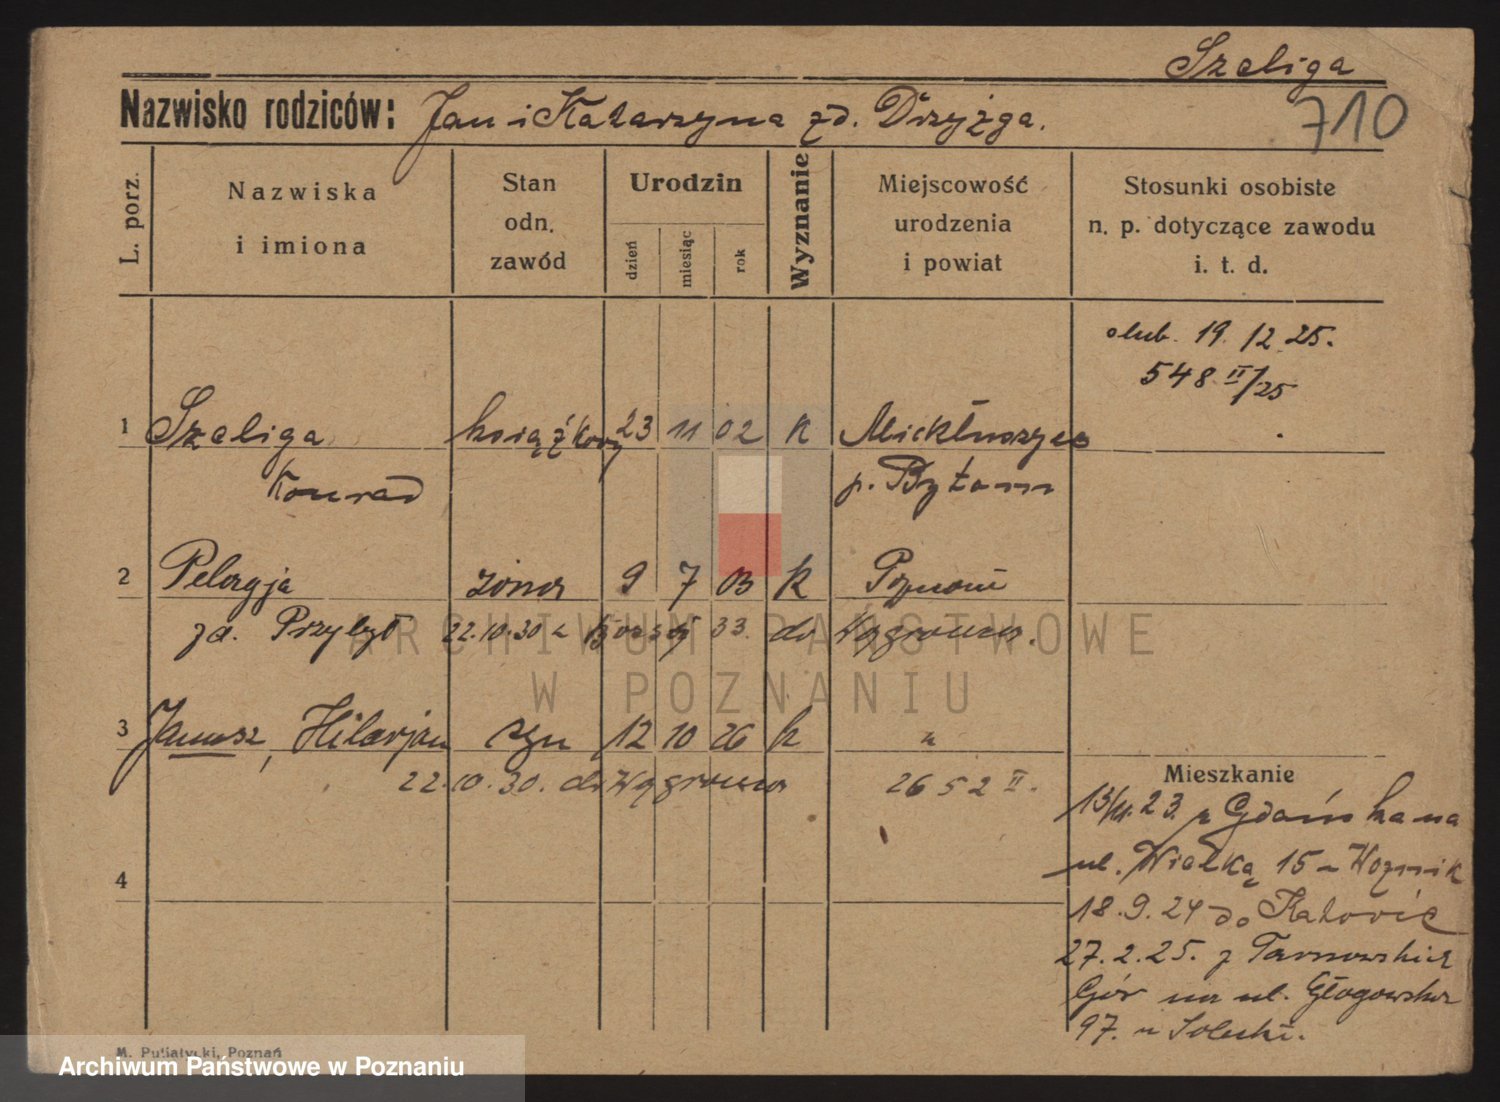 Szeliga
710
Nazwisko rodziców: Jan i Katarzyna zd. Drzyzga.
L. porz.
Nazwiska i imiona
Stan odn. zawód
Urodzin
dzień
miesiąc
rok
Wyznanie
Miejscowość urodzenia i powiat
Stosunki osobiste n. p. dotyczące zawodu i. t. d.
ślub. 19. 12. 25.
548 II/25
1 Szeliga książkowy 23 11 02 k
Konrad p. Bytom
2 Pelagja żona 9 7 03 k Poznań
zd. Przybył 22.10.30 33. do Wągrowca.
3 Janusz, Hilarjan syn 12 10 26 k "
22.10.30. do Wągrowca 2652 II.
Mieszkanie
23. z Gdańska na
ul. Wielką 15 Woźnik
18.9.24 do Katowic
27.2.25. z Tarnowskich
Gór na ul. Głogowska
97.
4
ARCHIWUM PAŃSTWOWE
W POZNANIU
M. Putiatycki, Poznań
Archiwum Państwowe w Poznaniu